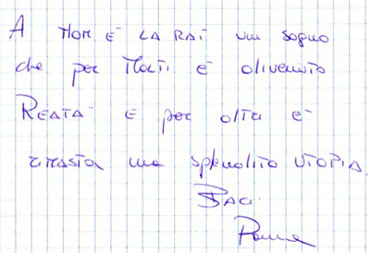 A NON È LA RAI un sogno
che per MOLTI è divenuto
REALTÀ E per altri è
RIMASTA una splendida UTOPIA.
BACI